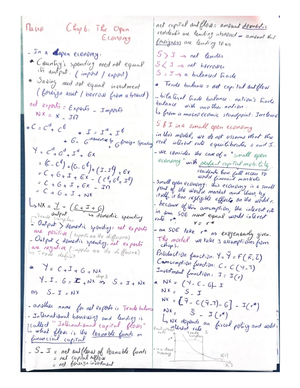 Chap 6: The Open
Economy
- In a open economy:
* Country's spending need not equal
its output. (import / export)
* Saving need not equal investment
(foreign court / borrow from abroad)
net exports = Exports - Imports
NX = X - IM
C = C^d + C^f
I = I^d + I^f
G = G^d + G^f
Y = C^d + I^d + G^d + EX
= (C - C^f) + (I - I^f) + (G - G^f) + EX
= C + I + G + EX - (C^f + I^f + G^f)
= C + I + G + EX - IM
= C + I + G + NX
NX = Y - (C + I + G)
output domestic spending
- Output > domestic spending: net exports
are positive
- Output < domestic spending: net exports
are negative
* Y = C + I + G + NX
Y - C - G = I + NX
S = I + NX
S - I = NX
- another name for net exports is Trade balance
- International borrowing and lending is
called "International capital flows"
financial capital
- S - I = net outflows of loanable funds
= net capital outflow
= net foreign investment
net capital outflow: amount domestic
residents are lending abroad - amount that
foreigners are lending to us
S > I → net lender
S < I → net borrower
S = I → a balanced trade
* Trade balance = net capital outflow
- bilateral trade balance: nation's trade
balance with another nation
- from a macroeconomic standpoint
S & I in a small open economy
in this model, we do not assume that the
real interest rate equilibrates S and I
- we consider the case of a "small open
economy" with perfect capital mobility
residents have full access to
world financial markets
- small open economy: this economy is a small
part of the world market and thus by
itself, it has negligible effects on the world
- because of this assumption, the interest rate
in our SOE must equal world interest
rate r*
r = r*
- an SOE take r* as exogenously given
This model: we take 3 assumptions from
chap 3.
Production function: Y = Ȳ = F(K̄, L̄)
Consumption function: C = C(Y - T)
Investment function: I = I(r)
NX = (Y - C - G) - I
NX = S - I
NX = [Ȳ - C(Ȳ - T) - G] - I(r*)
NX = S̄ - I(r*)
NX depends on fiscal policy and world
interest rate